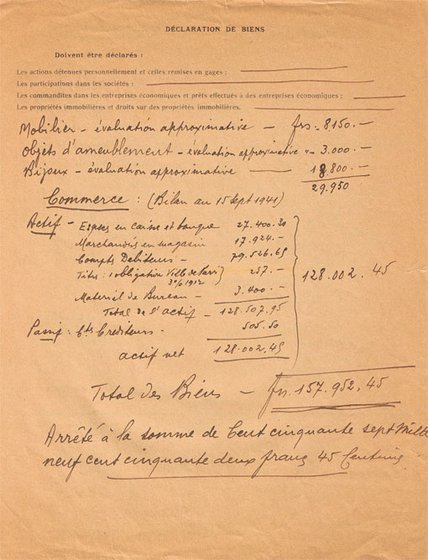 DÉCLARATION DE BIENS
Doivent être déclarés :
Les actions détenues personnellement et celles remises en gages ;
Les participations dans les sociétés :
Les commandites dans les entreprises économiques et prêts effectués à des entreprises économiques ;
Les propriétés immobilières et droits sur des propriétés immobilières.
Mobilier - évaluation approximative - frs - 8150.-
Objets d'ameublement - évaluation approximative " - 3.000.-
Bijoux - évaluation approximative - 18 800.-
29.950
Commerce : (Bilan au 15 Sept 1941)
Actif - Espèces en caisse et banque 27.400.30
Marchandises en magasin 17.924.-
Compts Débiteurs - 79.526.65
Titres : 1 obligation Ville de Paris 257.-
3% 1912
Materiel de Bureau - 3.400.-
128.002.45
Total de l'actif - 128.507,95
Passif : Cts Créditeurs - 505.50
actif net 128.002,45
Total des Biens - frs. 157.952,45
Arrêté à la somme de Cent cinquante sept Mille
neuf cent cinquante deux francs 45 Centimes